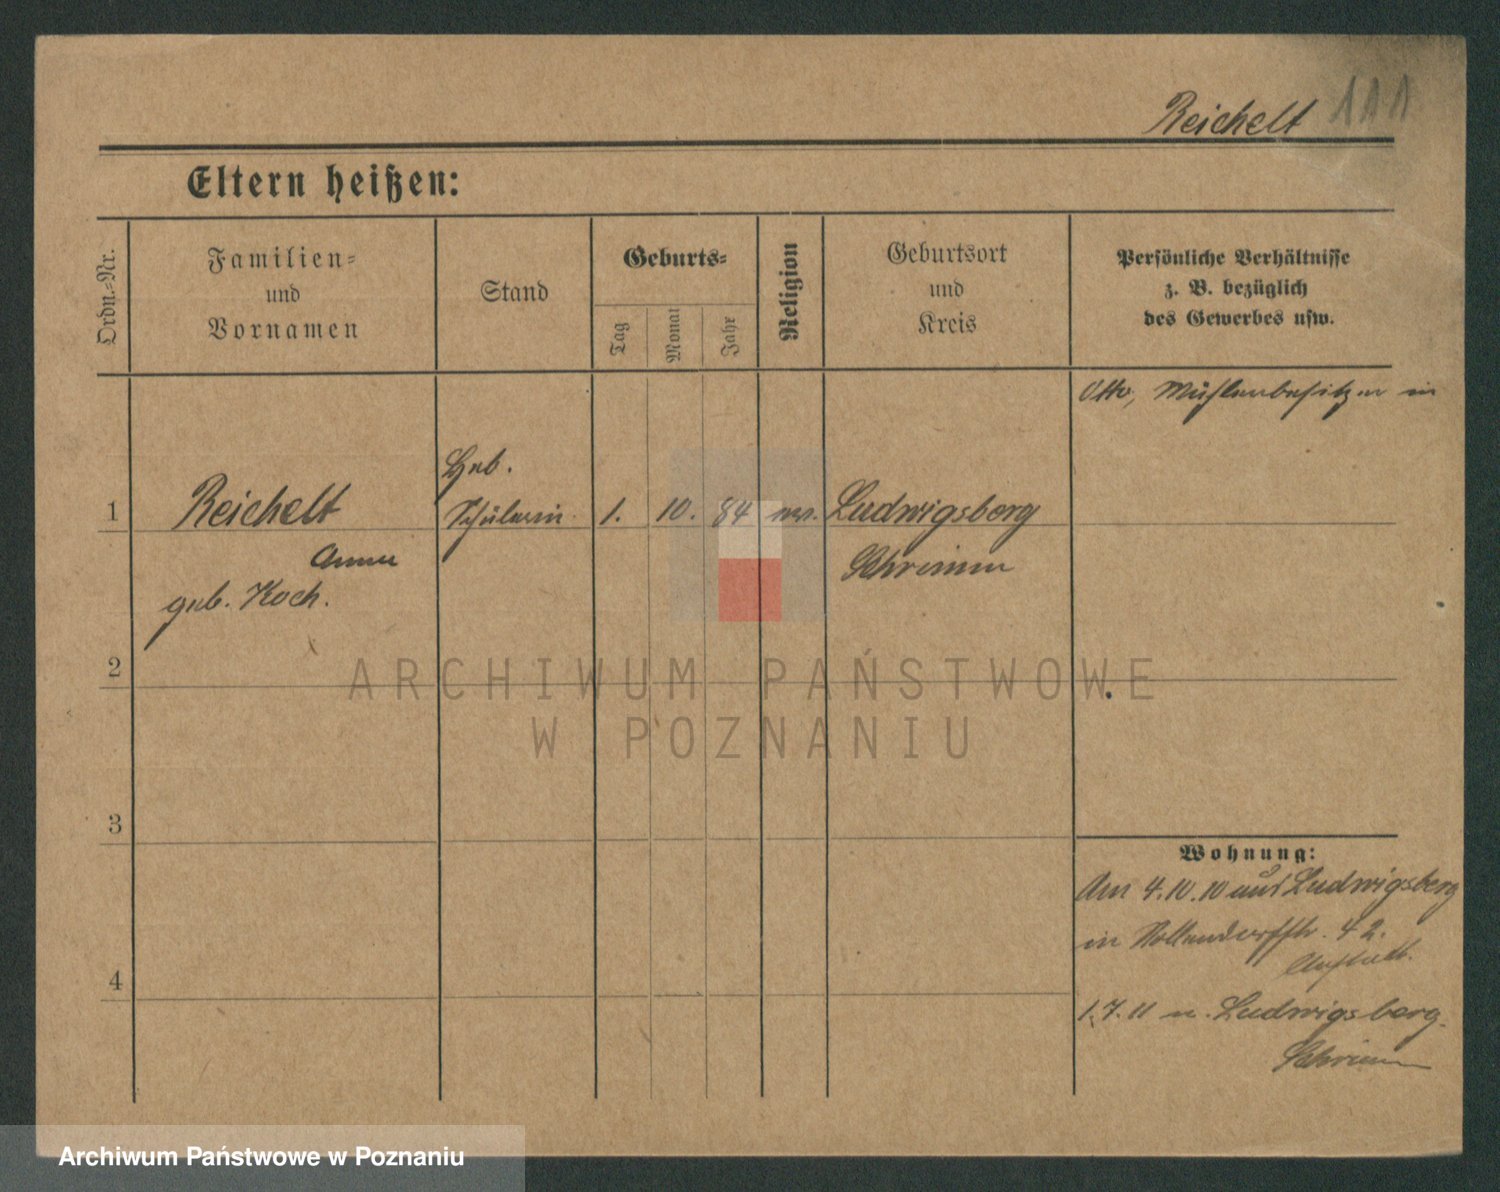 Reichelt 111
Eltern heißen:
Ordn.-Nr.
Familien-
und
Vornamen
Stand
Geburts-
Tag
Monat
Jahr
Religion
Geburtsort
und
Kreis
Persönliche Verhältnisse
z. B. bezüglich
des Gewerbes usw.
Otto, Mühlenbesitzer in
Heb.
1 Reichelt Schülerin 1. 10. 84 ev. Ludwigsberg
Anna Schrimm
geb. Koch.
2
ARCHIWUM PAŃSTWOWE
W POZNANIU
3
Wohnung:
Am 4.10.10 aus Ludwigsberg
in Nollendorffstr. 42.
4
1.7.11 n. Ludwigsberg.
Schrimm
Archiwum Państwowe w Poznaniu